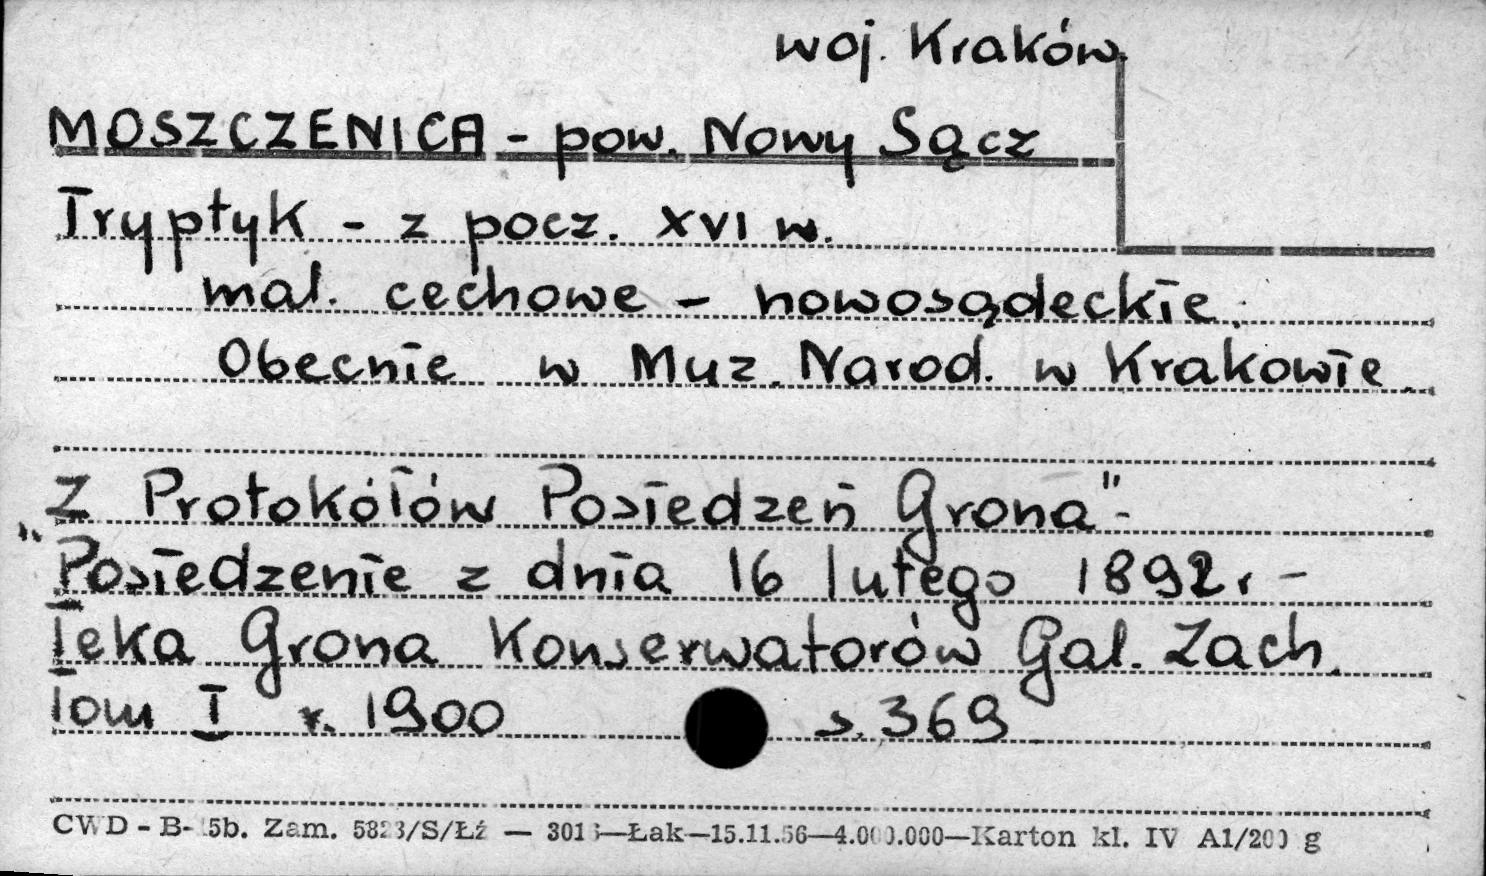 woj. Kraków.
MOSZCZENICA - pow. Nowy Sącz
Tryptyk - z pocz. XVI w.
mal. cechowe - nowosądeckie.
Obecnie w Muz. Narod. w Krakowie.
Z Protokółów Posiedzeń Grona"-
"Posiedzenie z dnia 16 lutego 1892r -
Teka Grona Konserwatorów Gal. Zach.
Tom I r. 1900 s. 369
CWD - B- 5b. Zam. 5823/S/Łź — 3013—Łak—15.11.56—4.000.000—Karton kl. IV A1/200 g